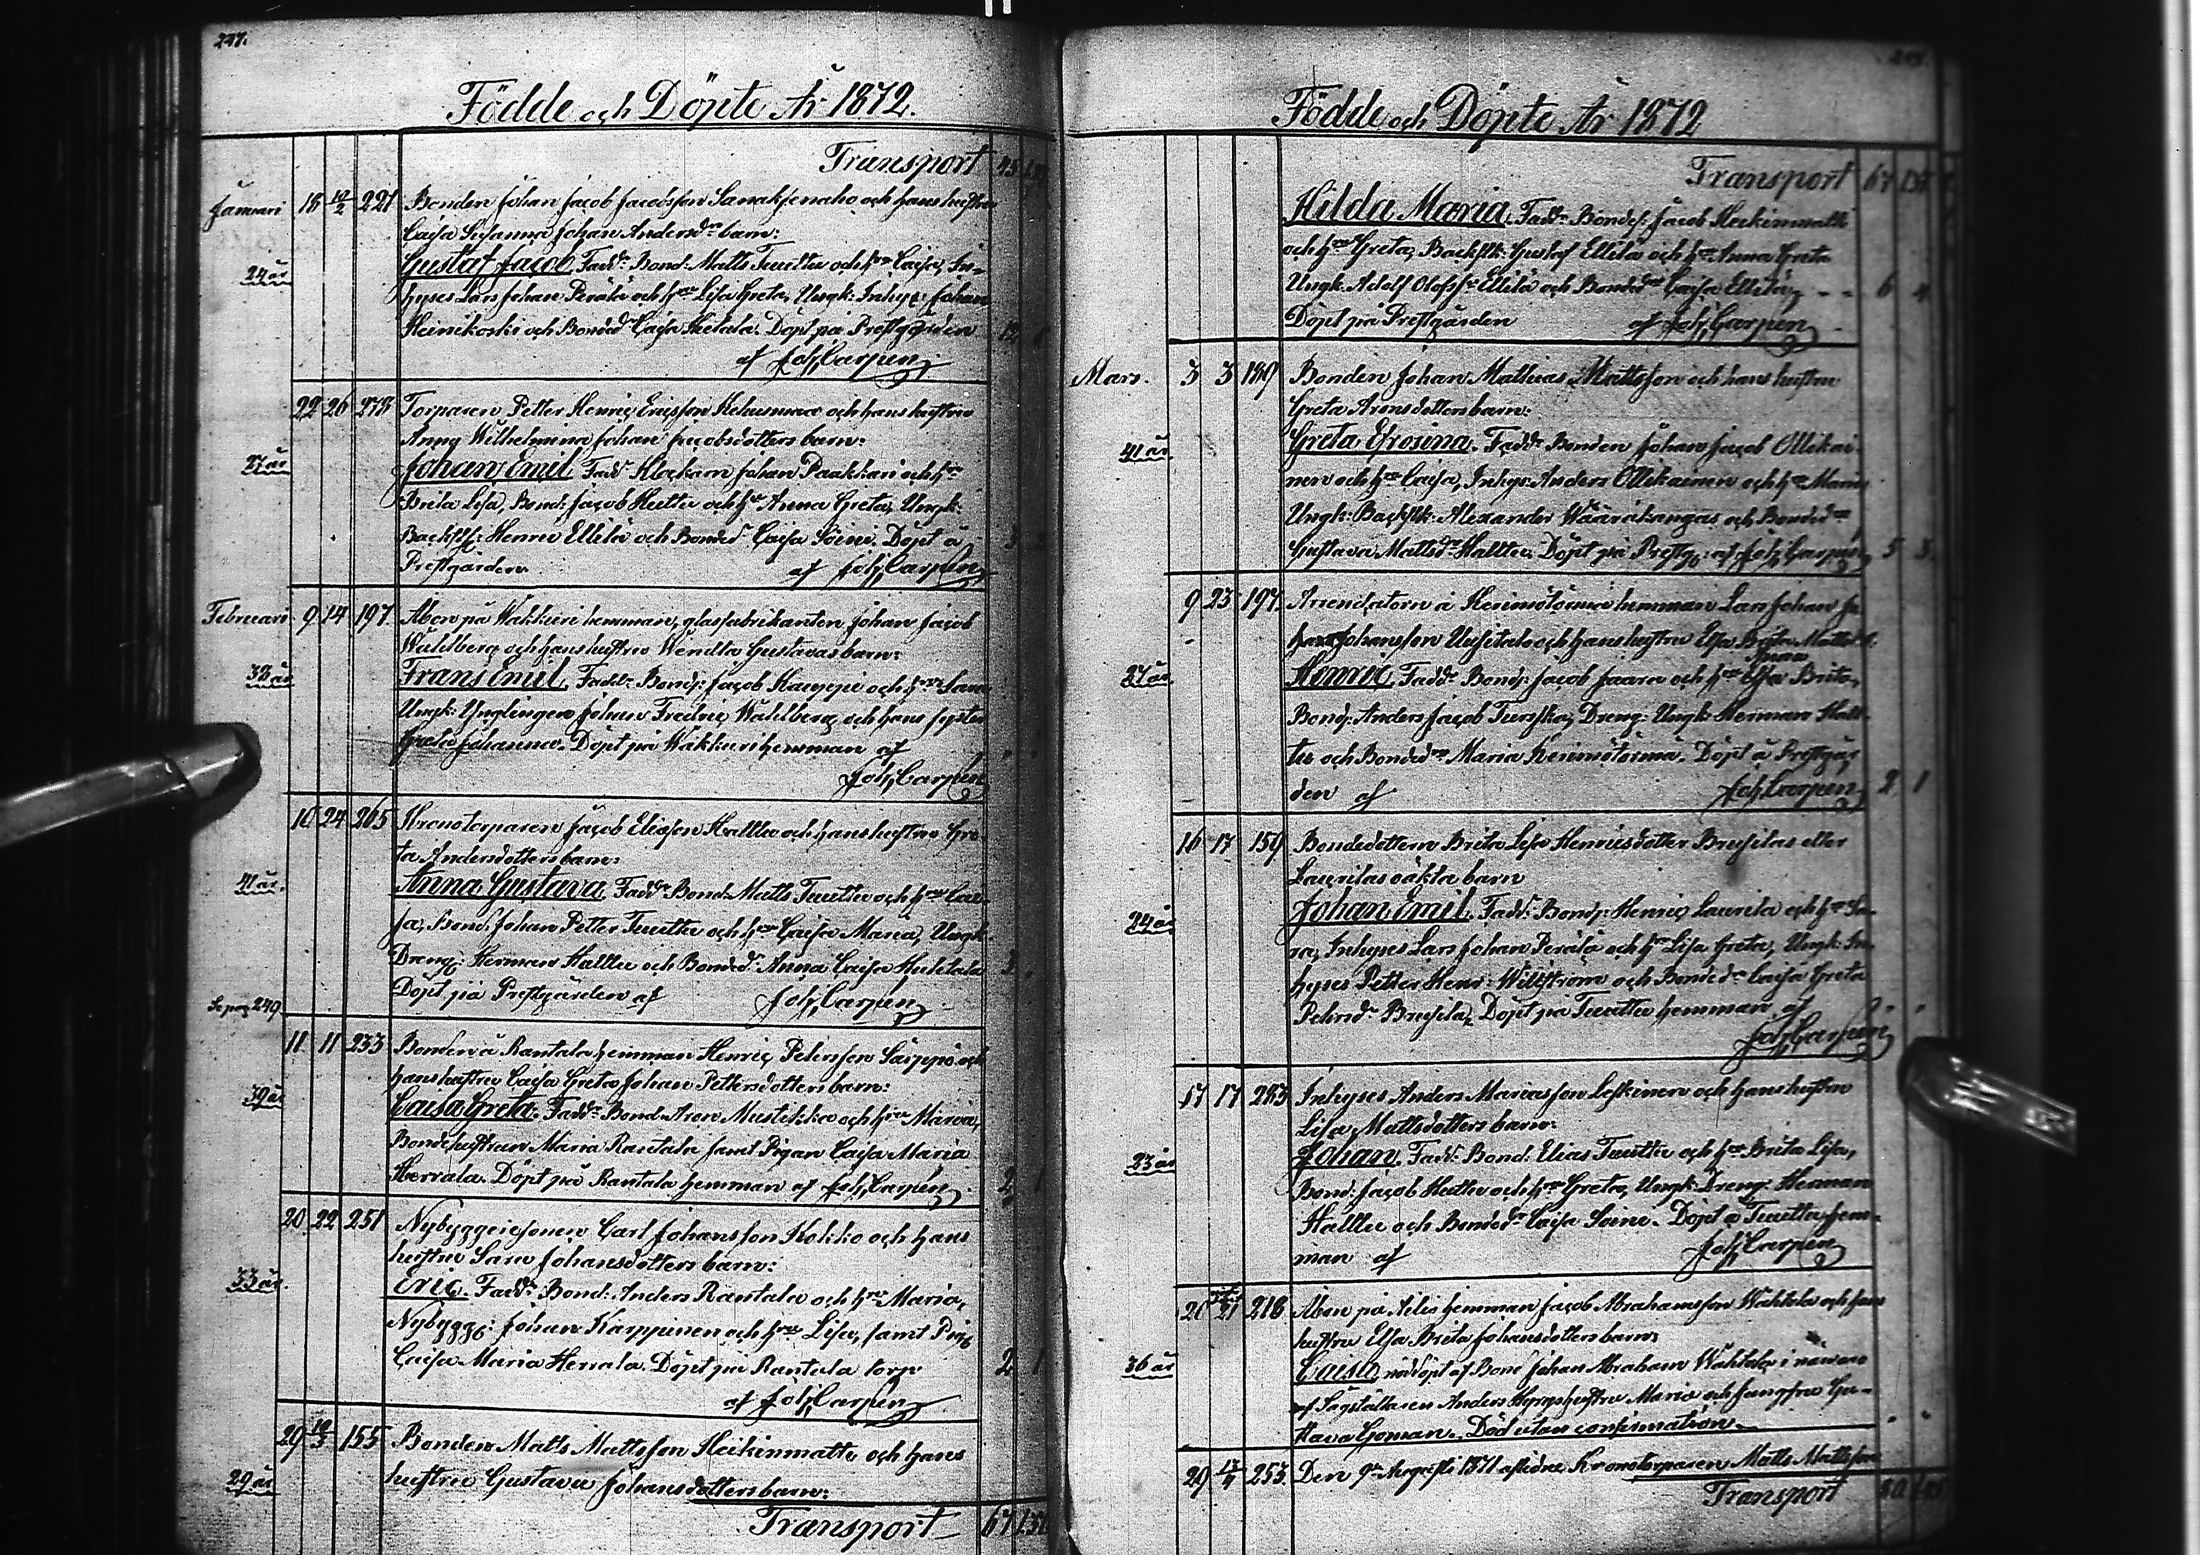 227.
Födde och Döpte År 1872.
Transport 45
Januari 18 10/2 221 Bonden Johan Jacob Jacobsson Sanaksenaho och hans hustru
Caisa Susanna Johan Andersdrs barn:
24 år Gustaf Jacob. Fadd: Bond: Matts Tuuttu och hu Caisa, In-
hyses Lars Johan Perälä och hu Lisa Greta, Ungk: Inhys: Johan
Heinikoski och Bonded Caisa Hietala. Döpt på Prestgården 12
af Joh. Carpén.
22 26 278 Torparen Petter Henric Ericsson och hans hustru
Anna Wilhelmina Johan Jacobsdotters barn:
27 år Johan Emil. Fadd: Klockarn Johan Paakkari och hu
Brita Lisa, Bond: Jacob Huttu och hu Anna Greta, Ungk:
Backstf: Henric Ellilä och Bonded Caisa Soini. Döpt å 3
Prestgården af Joh. Carpén
Februari 9 14 197 Åbon på Wakkuri hemman, glasfabrikanten Johan Jacob
Wahlberg och hans hustru Wendla Gustavas barn:
38 år Frans Emil. Fadd: Bond: Jacob Kamppi och hu Sara
Ungk: Ynglingen Johan Fredric Wahlberg och hans syster
Greta Johanna. Döpt på Wakkuri hemman af
Joh. Carpén
10 24 265 Kronotorparen Jacob Eliasson Halttu och hans hustru Gre-
ta Andersdotters barn:
41 år. Anna Gustava. Fadd: Bond: Matts Tuuttu och hu Cai-
sa, Bond: Johan Petter Tuuttu och hu Caisa Maria, Ungk:
Dreng: Herman Halttu och Bonded Anna Caisa Huhtala 3
Döpt på Prestgården af Joh. Carpén
Se pag 249
11 11 233 Bonden å Rantala hemman Henric Petersson Säippä och
hans hustru Caisa Greta Johan Pettersdotters barn:
39 år Caisa Greta. Fadd: Bond: Aron Mustikka och hu Maria,
Bondehustrun Maria Rantala samt Pigan Caisa Maria
Herrala. Döpt på Rantala hemman af Joh. Carpén. 2
20 22 251 Nybyggaresonen Carl Johansson Kokko och hans
hustru Sara Johansdotters barn:
33 år. Eric. Fadd: Bond: Anders Rantala och hu Maria,
Nybygg: Johan Karppinen och hu Lisa, samt Pig:
Caisa Maria Herrala. Döpt på Rantala torp 2 1
af Joh. Carpén
29 10/3 155 Bonden Matts Mattsson Heikinmatti och hans
29 år hustru Gustava Johansdotters barn:
Transport 67
Födde och Döpte År 1872
Transport 67
Hilda Maria. Fadd: Bond: Jacob Heikinmatti
och hu Greta, Backstf: Gustaf Ellilä och hu Anna Greta
Ungk: Adolf Olofss Ellilä och Bonded Caisa Ellilä 6 4
Döpt på Prestgården af Joh. Carpén
Mars. 3 3 189 Bonden Johan Mathias Mattsson och hans hustru
Greta Aronsdotters barn:
41 år Greta Efrosina. Fadd: Bonden Johan Jacob Ollikai
nen och hu Caisa, Inhys: Anders Ollikainen och hu Maria
Ungk: Backstf: Alexander Wäärälsengas och Bonded
Gustava Mattsdr Halttu. Döpt på Prestg: af Joh. Carpén 5 3
9 23 197. Arrendatorn å hemman Lars Johan
Johansson Uusitalo och hans hustru Elsa Brita Mattsd:
27 år Henric. Fadd: Bond: Jacob Jaara och hu Anna Brita,
Bond: Anders Jacob Tuuska, Dreng: Ungk: Herman Halt-
tu och Bonded Maria. Döpt å Prestgår
den af Joh. Carpén 2 1
16 17 159 Bondedottern Brita Lisa Henricsdotter Brusilas eller
Laurilas oäkta barn
24 år Johan Emil. Fadd: Bond: Henric Laurila och hu Sa-
ra, Inhyses Lars Johan Perälä och hu Lisa Greta, Ungk: In-
hyses Petter Henr: Willström och Bonded Caisa Greta
Petersd Brusila, Döpt på Tuuttu hemman af
Joh. Carpén
17 17 283 Inhyses Anders Mariasson Leskinen och hans hustru
Lisa Mattsdotters barn:
23 år Johan. Fadd: Bond: Elias Tuuttu och hu Brita Lisa,
Bond: Jacob Huttu och hu Greta, Ungk: Dreng: Herman
Halttu och Bonded Caisa Soini. Döpt å Tuuttu hem-
man af Joh. Carpén
20 21 218 Åbon på Ailis hemman Jacob Abrahamsson Wahtola och hans
hustru Elsa Brita Johansdotters barn:
36 år Caisa, nöddöpt af Bond Johan Abraham Wahtola i närvaro
af Sågställaren Anders hustru Maria och Jungfru Gu-
stava Goman. Död utan confirmation.
29 253. Den 9de Augusti 1871 aflidne Kronotorparen Matts Mattsson
Transport